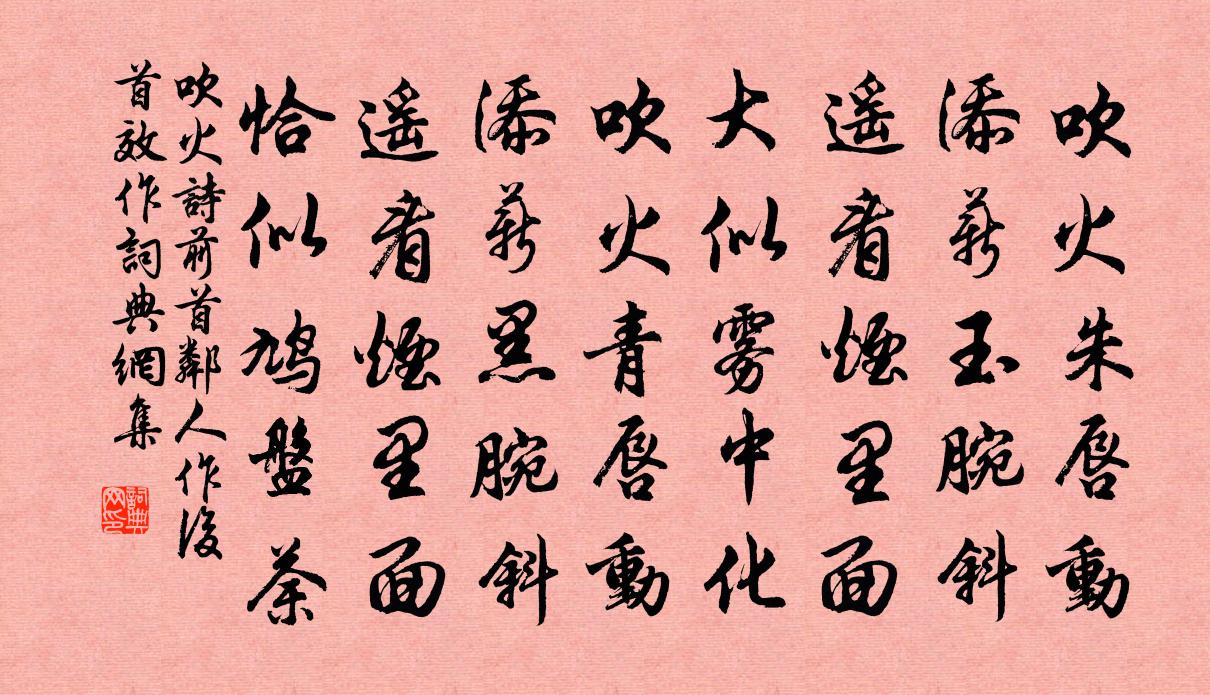 吹火朱唇動
添薪玉腕斜
遥看煙里面
大似霧中化
吹火青唇動
添薪黑腕斜
遥看煙里面
恰似鳩盤荼
吹火詩前首鄰人作後
首效作詞典網集
詞典网印